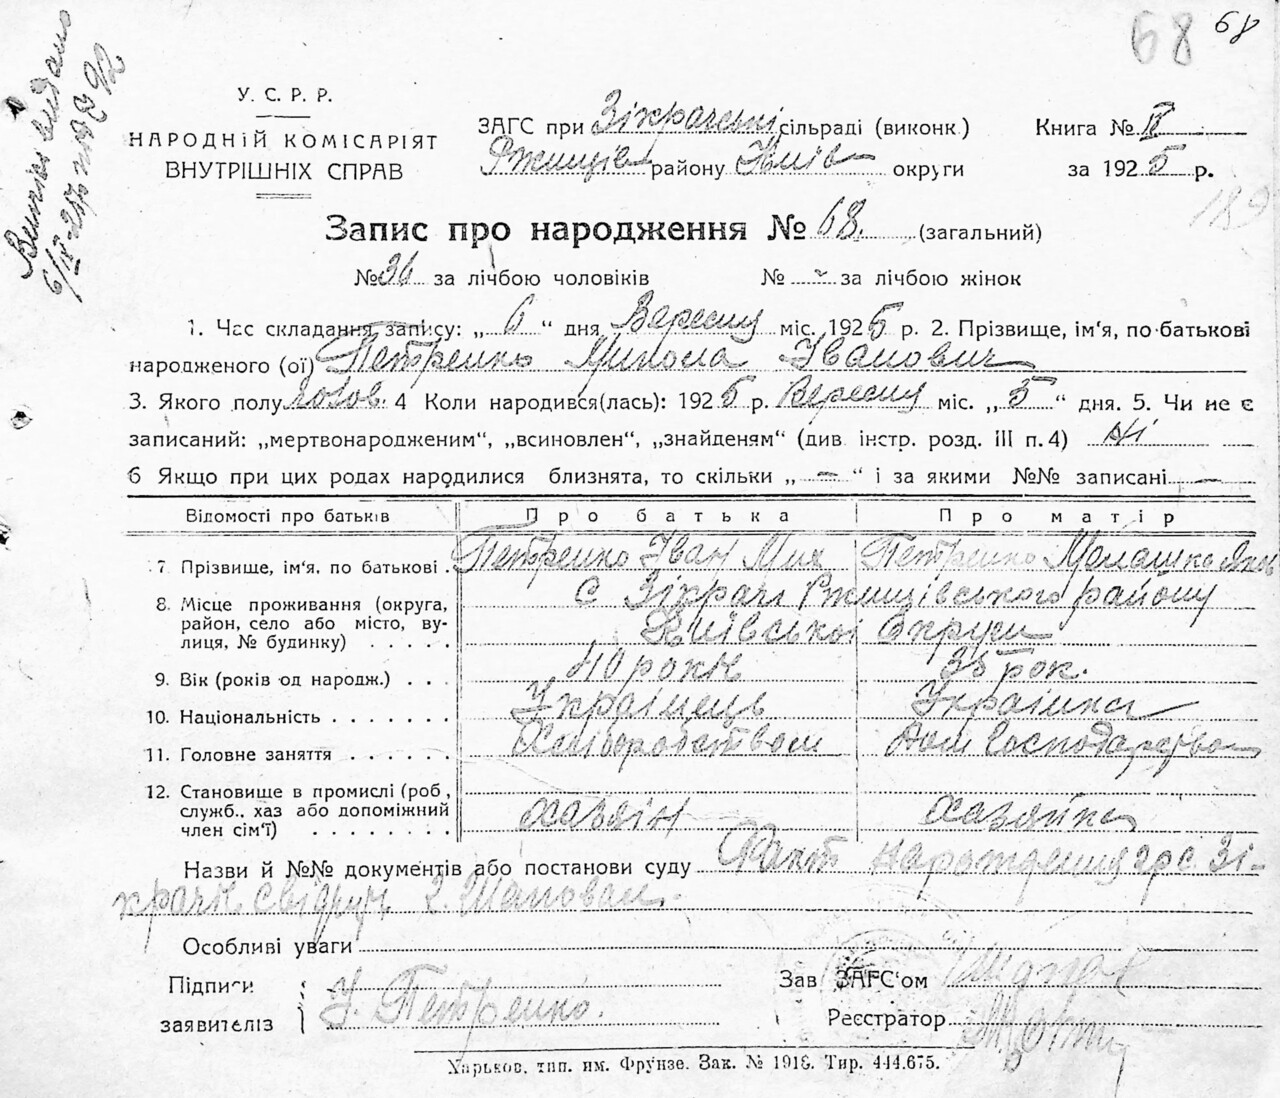 68 68
Випис видано
6/IX-25р по №92
У. С. Р. Р.
НАРОДНІЙ КОМІСАРІЯТ
ВНУТРІШНІХ СПРАВ
ЗАГС при Зікрачські сільраді (виконк.)
Ржищів району Київ округи
Книга № II
за 1925 р.
189
Запис про народження № 68. (загальний)
№ 36 за лічбою чоловіків № - за лічбою жінок
1. Час складання запису: „ 6 “ дня Вересня міс. 1925 р. 2. Прізвище, ім'я, по-батькові
народженого (ої) Петренко Микола Іванович
3. Якого полу чолов. 4 Коли народився(лась): 1925 р. Вересня міс. „ 5 “ дня. 5. Чи не є
записаний: „мертвонародженим“, „всиновлен“, „знайденям“ (див інстр. розд. III п. 4) Ні
6 Якщо при цих родах народилися близнята, то скільки „ — “ і за якими №№ записані —
Відомості про батьків Про батька Про матір
7 Прізвище, ім'я, по батькові . Петренко Іван Мих Петренко Мелашка Яков
8. Місце проживання (округа, район, село або місто, вулиця, № будинку) . . . . . с Зікрачі Ржищівського району
Київської Округи
9. Вік (років од народж.) . . . 40 років 35 рок.
10. Національність . . . . . . . Українець Українка
11. Головне заняття . . . . . . Хліборобством Дом Господарство
12. Становище в промислі (роб., служб., хаз або допоміжний член сім'ї) . . . . . . . . хазяїн хазяйка
Назви й №№ документів або постанови суду Факт нарождения гр с. Зі-
крачи. свідчув Шаповал.
Особливі уваги
Підписи
заявителіз
І. Петренко.
Зав ЗАГС'ом
Реєстратор
Харьков. тип. им. Фрунзе. Зак. № 1918. Тир. 444.675.